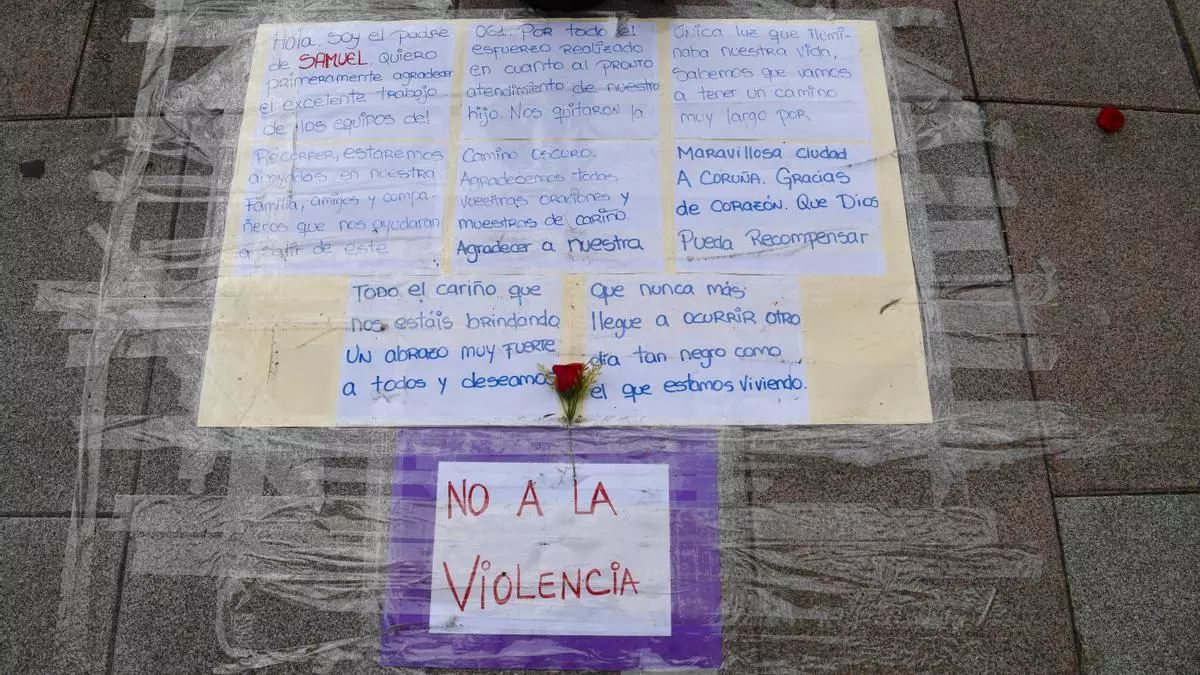 Hola, soy el padre
de SAMUEL, QUIERO
PRIMERAMENTE agradecer
el excelente TRABAJO
de los equipos del
061. POR todo el
ESFUERZO REALIZADO
en cuanto al PRONTO
atendimiento de nuestro
hijo. Nos quitaron la
Única luz que ilumi
naba nuestra vida,
Sabemos que vamos
a tener un camino
muy largo por
RECORRER, estaremos
apoyados en nuestra
Familia, amigos y compa-
ñeros que nos ayudaran
a partir de este
Camino OSCURO.
Agradecemos todas
vuestras oraciones y
muestras de cariño.
Agradecer a nuestra
MARAVILLOSA ciudad
A CORUÑA. Gracias
de CORAZÓN. Que Dios
Pueda Recompensar
TODO el cariño que
nos estáis brindando
UN abrazo MUY FUERTE
a todos y deseamos
que nunca más
llegue a OCURRIR OTRO
día tan negro como
el que estamos viviendo.
NO A LA
VIOLENCIA